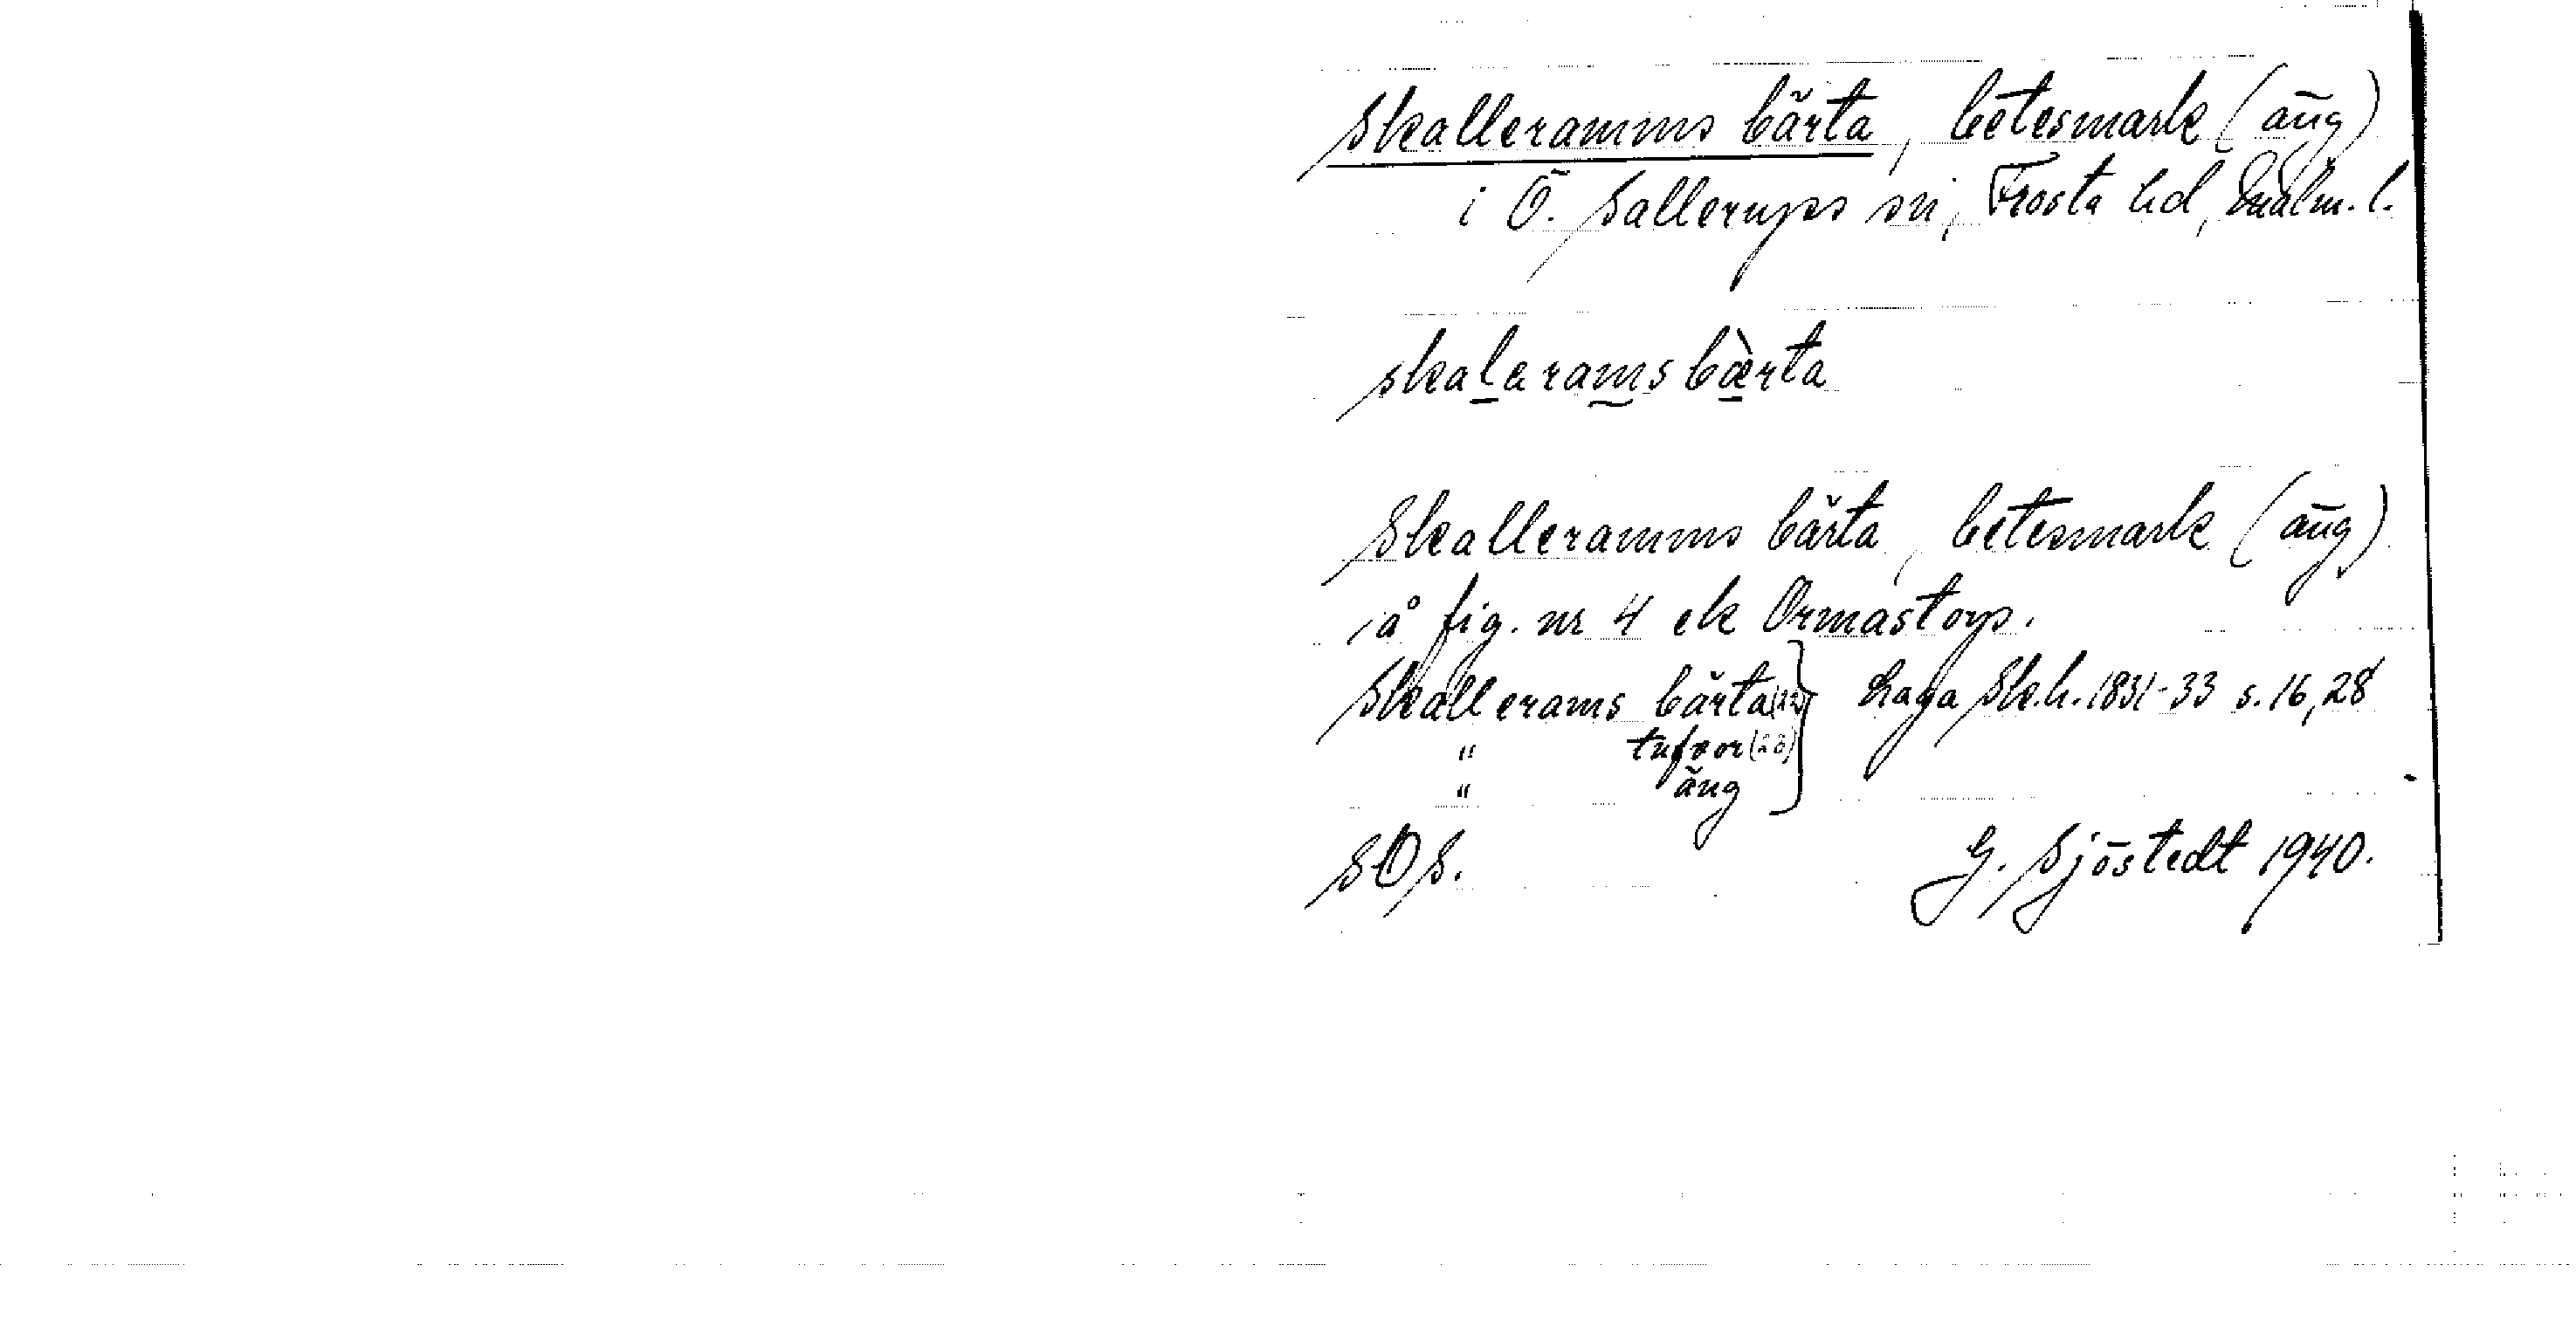 Skalleramms bärta, betesmark (äng)
i Ö. Sallerups sn, Frosta hd, Malm. l.
skalaramsbærta
Skalleramms bärta, betesmark (äng)
å fig. nr 4 ek Ormastorp.
Skallerams bärta } Laga Sk.h. 1831-33 s. 16, 28
" tufvor (28)
" äng
SOS. G. Sjöstedt 1940.